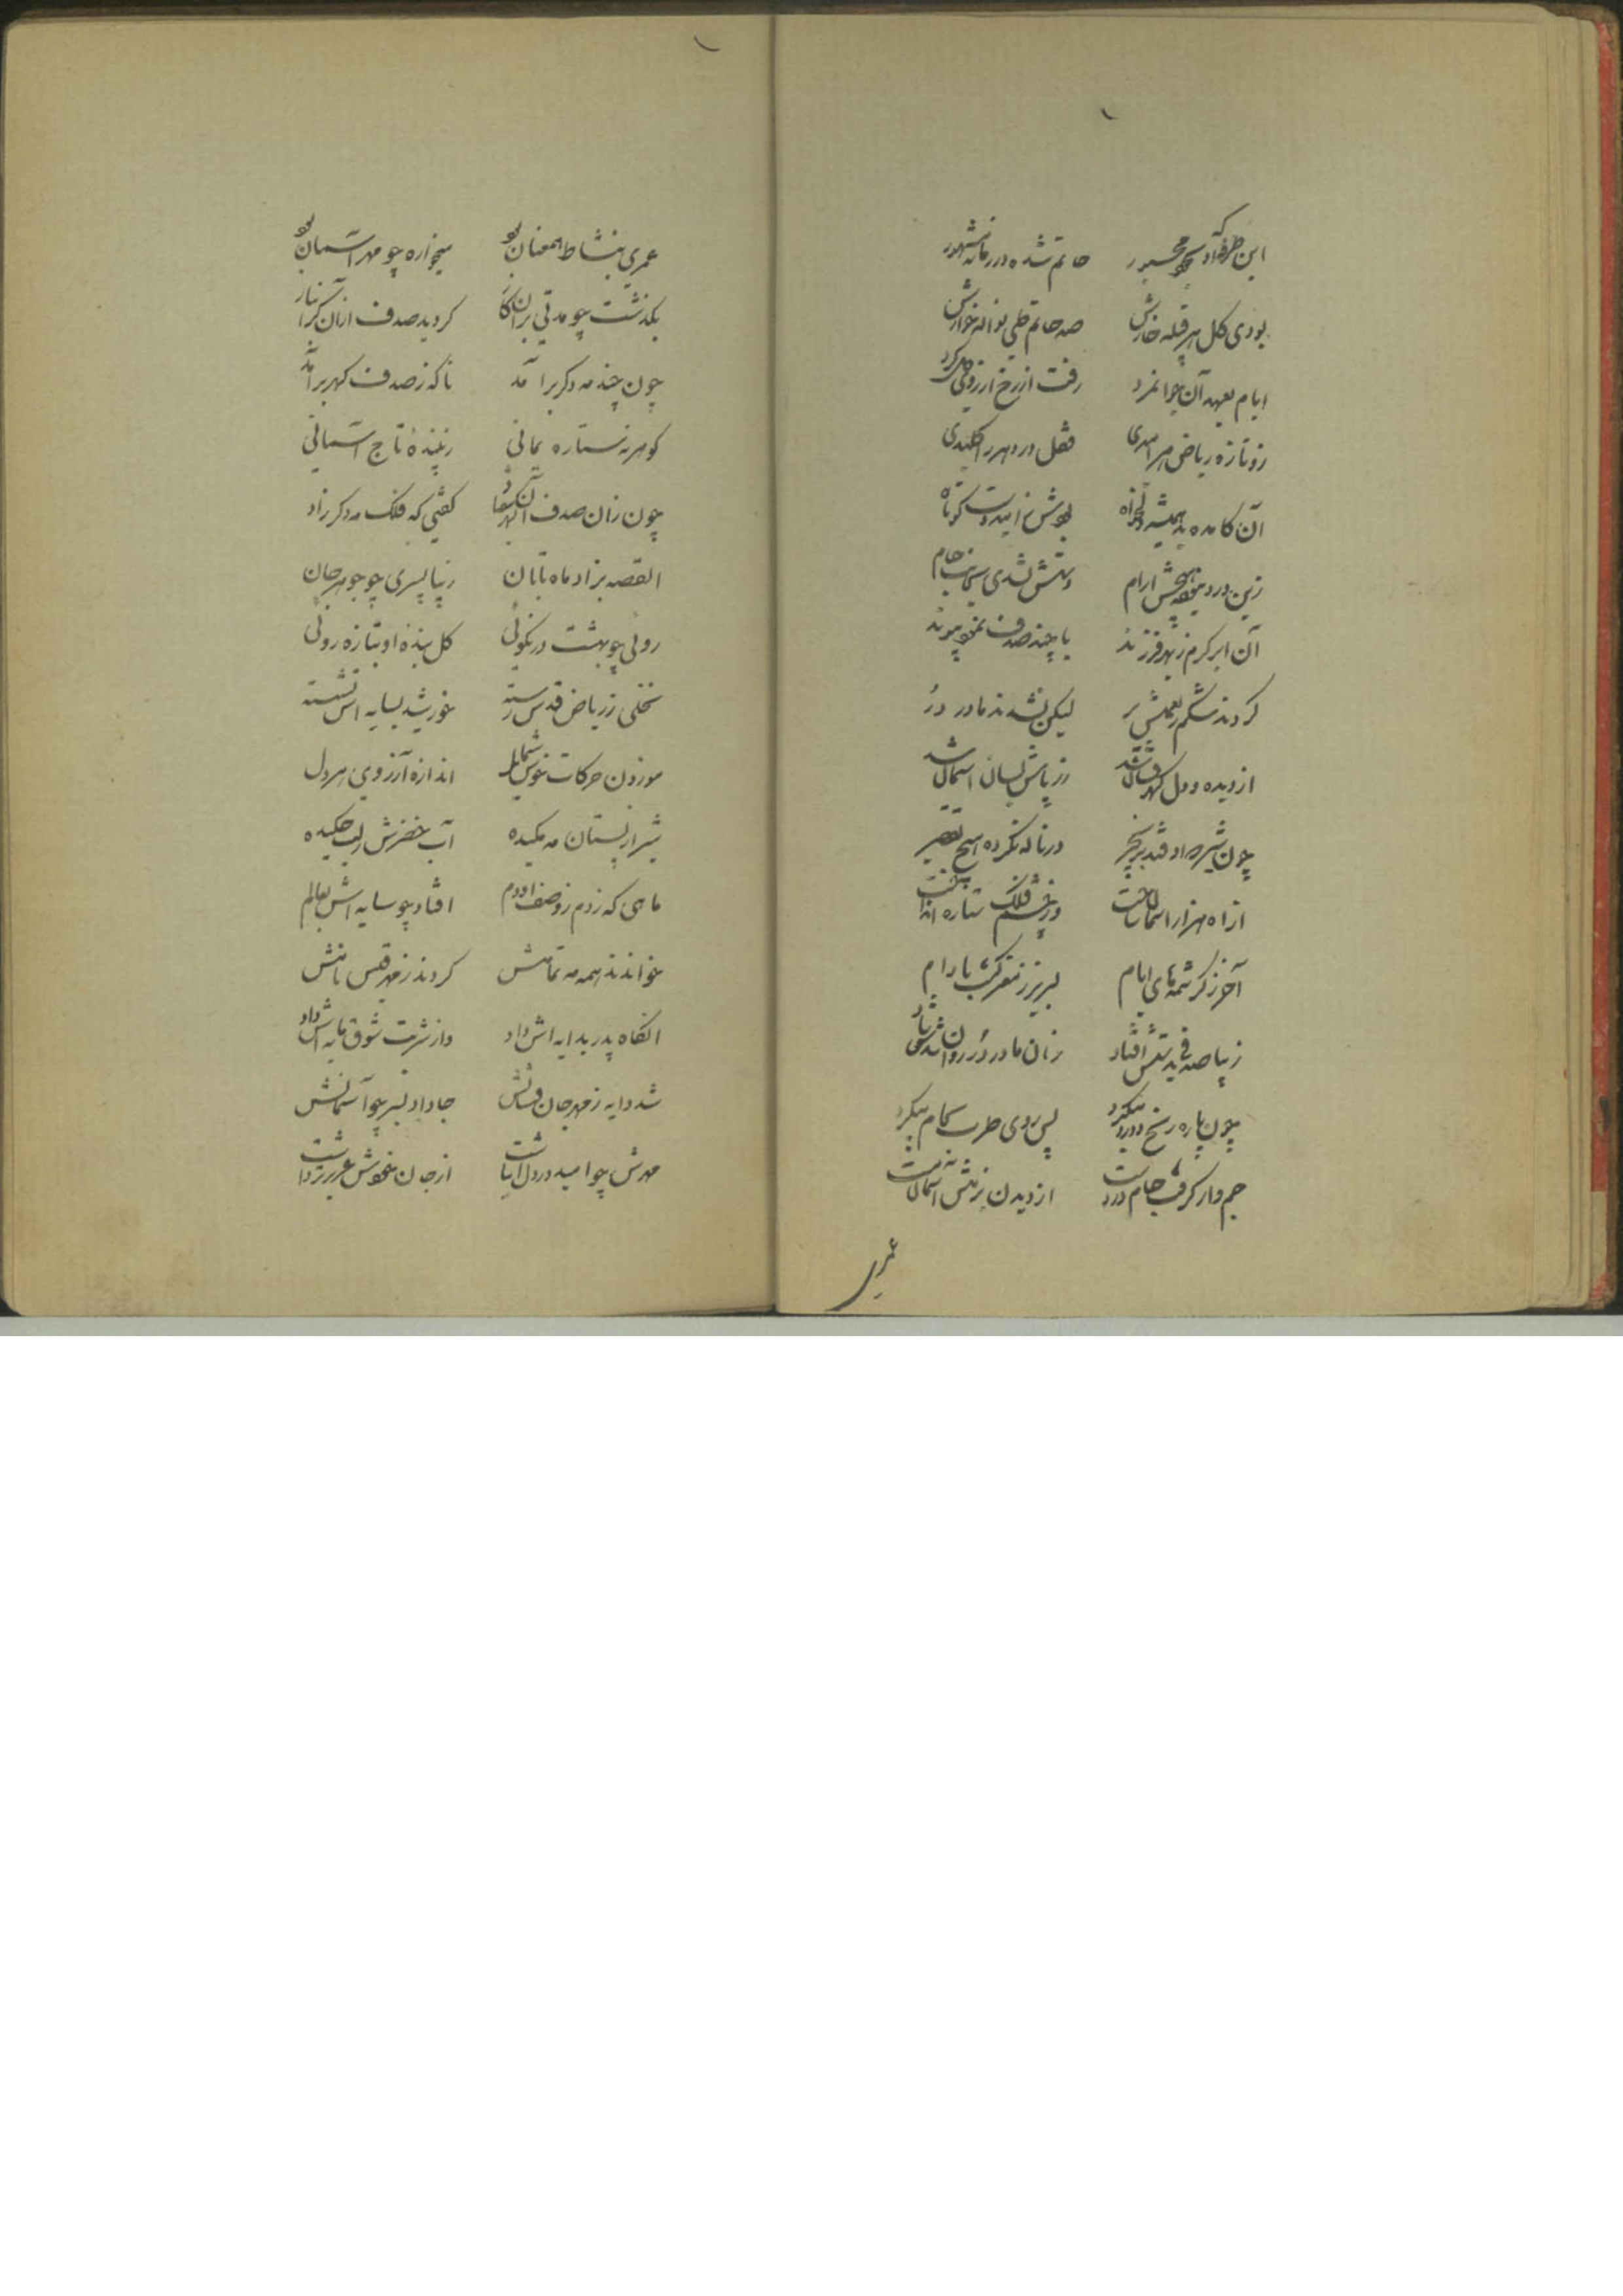 این طرفه که او بجود مجبور حاتم شده در زمانه مشهور
بودی گل هر قبیله خارش صد حاتم طی نواله خوارش
ایام بعهد آن جوانمرد رفت از رخ آرزو
زو تازه ریاض هر امیدی قفل در دهر را کلیدی
آن کامده بد همیشه دلخواه بودش ز امید دست کوتاه
زین درد نبود هیچش ارام دستش نشدی
آن ابر کرم ز بهر فرزند با چند صدف نمود پیوند
کردند شکم ز نعمتش پر لیکن نشدند مادر در
از دیده و دل گهرفشان شد در پاش بسان اسمان شد
چون شیر در ناله نکرده هیچ تقصیر
از اه هزار اسمان ساخت در چشم فلک ستاره انداخت
آخر ز کرشمه های ایام لبریز ز مغز گشت بادام
زیبا صدفی بدستش افتاد زان مادر در روان شدش شاد
چون باره رنج دور میکرد پس روی طرب بکام میکرد
جم وار گرفت جام در دست از دیدن
عمری
عمری بنشاط همعنان بود میخواره چو مهر آسمان بود
بگذشت چو مدتی بران کار گردید صدف ازان گرانبار
چون چند مه دگر برآمد ناگه ز صدف گهر برآمد
گوهر نه ستاره یمانی زیبندهٔ تاج آسمانی
چون زان صدف آن گهر بیفتاد گفتی که فلک مه دگر زاد
القصه بزاد ماه تابان زیبا پسری چو جوهر جان
روئی چو بهشت در نکوئی گل بندهٔ او بتازه روئی
نخلی ز ریاض قدس رسته خورشید بسایه اش نشسته
موزون حرکات خوش شمایل اندازه آرزوی هر دل
شیر از پستان مه مکیده آب خضرش ز لب چکیده
ماهی که زدم ز وصف او دم افتاد چو سایه اش بعالم
خواندند همه مه تمامش کردند ز مهر قیس نامش
انگاه پدر بدایه اش داد وز شربت شوق مایه اش داد
شد دایه ز مهر جان فشانش جا داد بسر چو آسمانش
مهرش چو امید در دل انباشت از جان خودش عزیزتر داشت